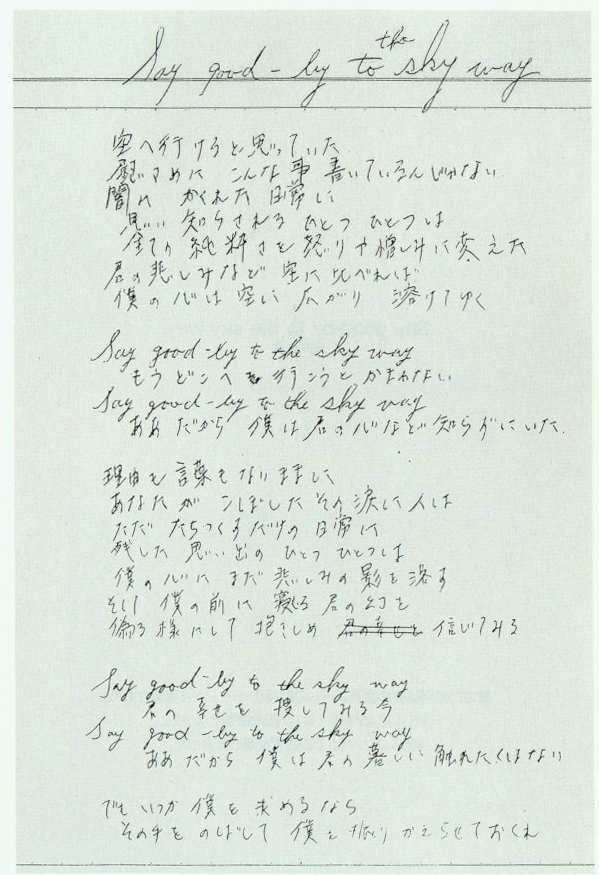 Say good-by to the sky way
空へ行けると思っていた
慰さめに こんな事 書いているんじゃない
闇に かくれた 日常に
思い 知らされる ひとつ ひとつは
全ての 純粋さを 怒りや憎しみに変えた
君の悲しみなど 空に比べれば
僕の心は空に 広がり 溶けてゆく
Say good-by to the sky way
もう どこへ 行こうと かまわない
Say good-by to the sky way
ああ だから 僕は 君の心など 知らずにいた
理由も 言葉も ないままに
あなたが こぼした その涙に 人は
ただ たちつくすだけの 日常に
残した 思い出の ひとつ ひとつは
僕の心に まだ 悲しみの 影を 落す
そして 僕の前に 寝る 君の幻を
偽る様にして 抱きしめ 君の幸せを 信じてみる
Say good-by to the sky way
君の 幸せを 捜してみる今
Say good-by to the sky way
ああ だから 僕は 君の 暮しに 触れたくはない
でも いつか 僕を 求めるなら
その手を のばして 僕を 振り かえらせて おくれ